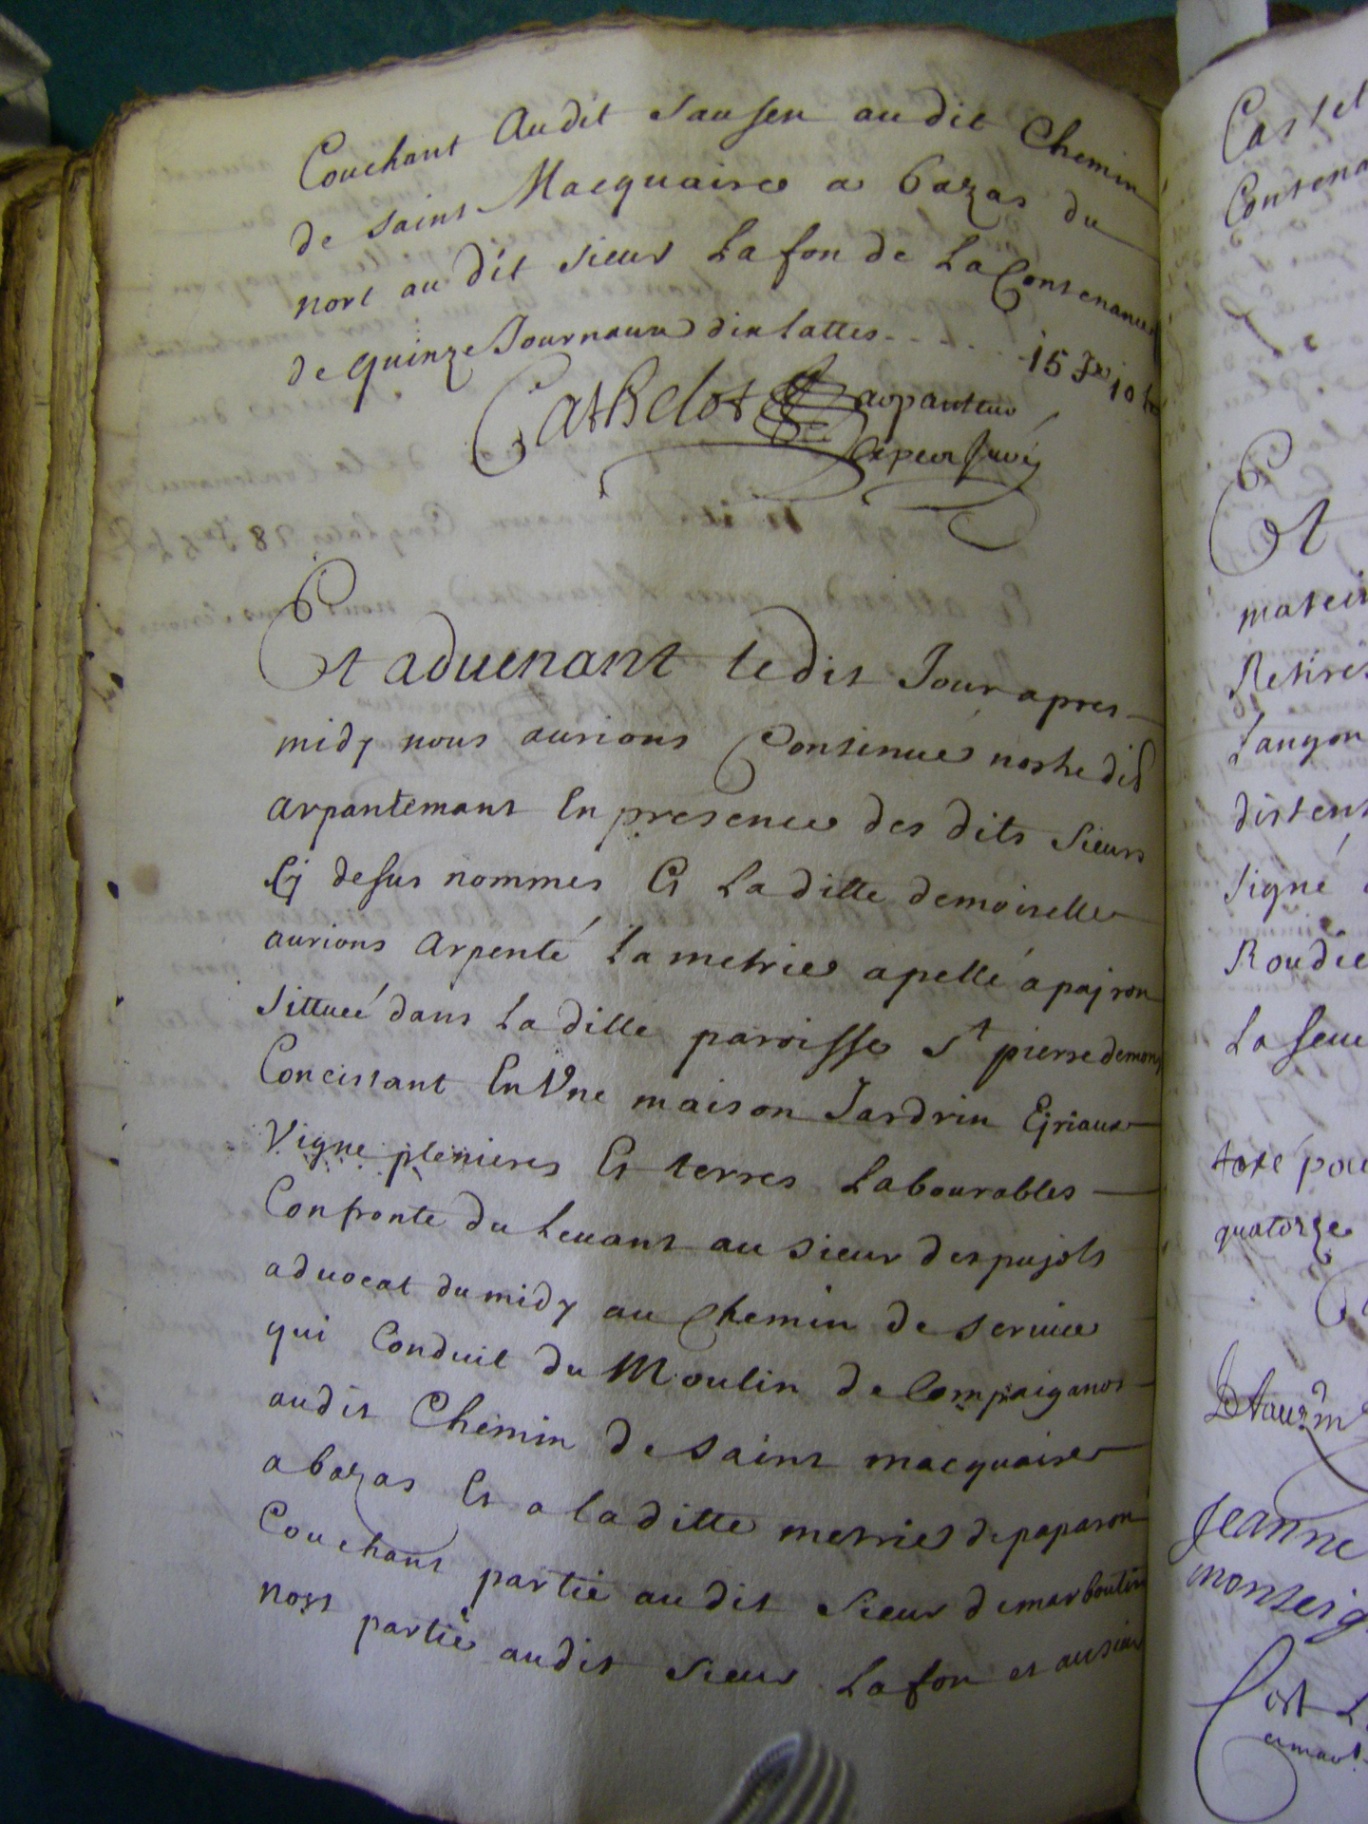 Couchant Audit Sausen audit Chemin
de saint Macquaire a bazas du
nort au dit sieur Lafon de La Contenance
de quinze Journaux dix lattes - - - - - - 15 Jx 10 Les
Cathelot arpanteur
et peur Juré
Et aduenant ledit Jour apres
midy nous aurions Continué nostre dit
arpantemant En presence des dits sieurs
Cy desus nommes Et La ditte demoiselle
aurions arpenté la metrie apellé a pajron
sittuée dans La ditte paroisse St pierre demons
Concistant En Vne maison Jardrin Ejriaux
Vigne plenieres Et terres Labourables
Confronte du Leuant au sieur despujols
aduocat du midy au Chemin de seruice
qui Conduit du Moulin de Compaiganos
audit Chemin de saint macquaire
a bazas Et a la ditte metrie de paparon
Couchant partie audit sieur demarboutin
nort partie audit sieur Lafon et au sieur
Castel
Contena
Et
matein
Retires
Langon
distent
signé
Roudie
La seue
toxé pour
quatorze
Jeanne
monteig